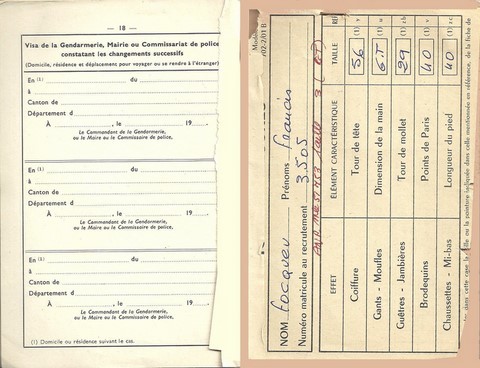 — 18 —
Visa de la Gendarmerie, Mairie ou Commissariat de police
constatant les changements successifs
(Domicile, résidence et déplacement pour voyager ou se rendre à l'étranger)
En (1) du
à
Canton de
Département d
À , le 19
Le Commandant de la Gendarmerie,
ou le Maire ou le Commissaire de police,
En (1) du
à
Canton de
Département d
À , le 19
Le Commandant de la Gendarmerie,
ou le Maire ou le Commissaire de police,
En (1) du
à
Canton de
Département d
À , le 19
Le Commandant de la Gendarmerie,
ou le Maire ou le Commissaire de police,
(1) Domicile ou résidence suivant le cas.
NOM Prénoms Francis
Numéro matricule au recrutement 3.505
EFFET ÉLÉMENT CARACTÉRISTIQUE TAILLE
Coiffure Tour de tête (1) 56
Gants - Moufles Dimension de la main (1) 6T
Guêtres - Jambières Tour de mollet (1) 29
Brodequins Points de Paris (1) 40
Chaussettes - Mi-bas Longueur du pied (1) 40